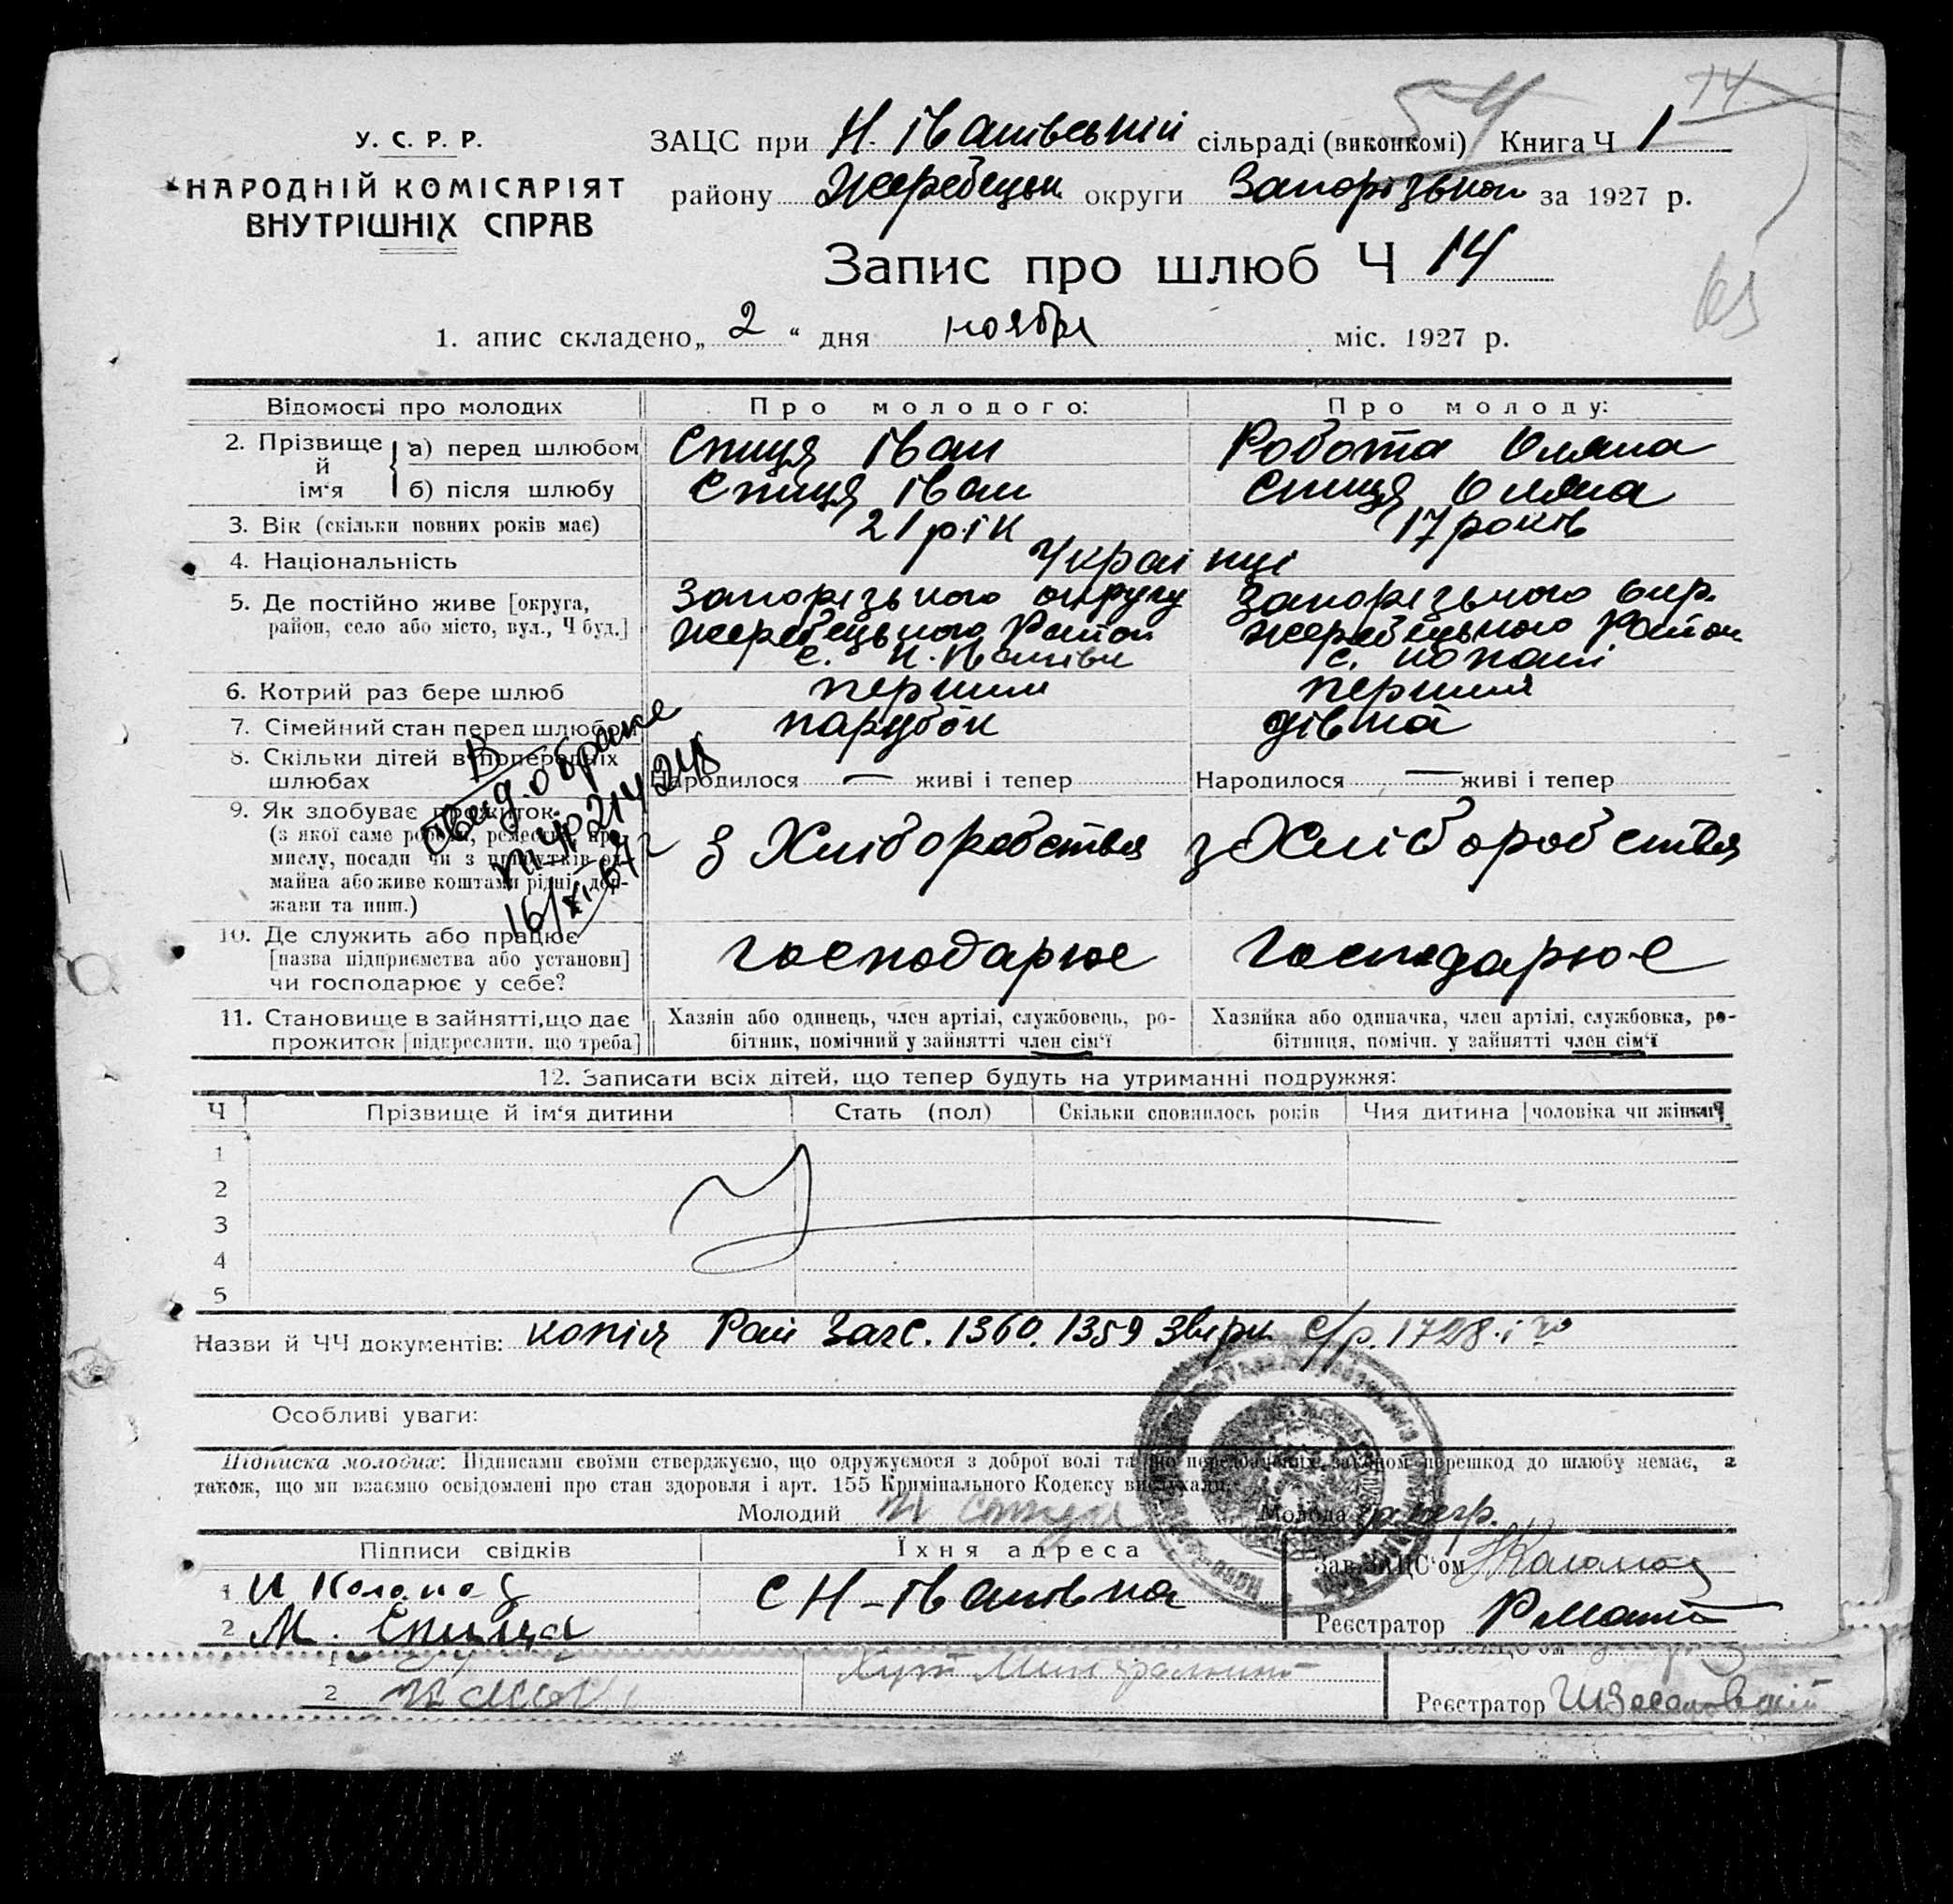 У. С. Р. Р.
НАРОДНІЙ КОМІСАРІЯТ
ВНУТРІШНІХ СПРАВ
ЗАЦС при Н. Іванівській сільраді (виконкомі) Книга Ч 1
54
14
району Жеребецьк округи Запорізькой за 1927 р.
Запис про шлюб Ч 14
63
1. апис складено „ 2 “ дня ноября міс. 1927 р.
Відомості про молодих Про молодого: Про молоду:
2. Прізвище й ім‘я а) перед шлюбом Спиця Іван Робота Оляна
б) після шлюбу Спиця Іван Спиця Оляна
3. Вік (скільки повних років має) 21 рік 17 років
4. Національність Украінці
5. Де постійно живе [округа, район, село або місто, вул., Ч буд.]
Запорізького округу Запорізького окр.
Жеребецького Район Жеребецького Район
с. Н. Іванівки с. Копані
6. Котрий раз бере шлюб первий первий
7. Сімейний стан перед шлюбом парубок дівка
8. Скільки дітей в попередніх шлюбах Народилося — живі і тепер Народилося — живі і тепер
9. Як здобуває прожиток
(з якої саме роботи, ремества, промислу, посади чи з прибутків од майна або живе коштами рідні, держави та инш.)
з Хліборобства з Хліборобства
В
Свид. о браке
16/XI-67 г
10. Де служить або працює
[назва підприємства або установи]
чи господарює у себе?
господарює господарює
11. Становище в зайнятті, що дає
прожиток [підкреслити, що треба]
Хазяїн або одинець, член артілі, службовець, робітник, помічний у зайнятті член сім‘ї
Хазяйка або одиначка, член артілі, службовка, робітниця, помічн. у зайнятті член сім‘ї
12. Записати всіх дітей, що тепер будуть на утриманні подружжя:
Ч Прізвище й ім‘я дитини Стать (пол) Скільки сповнилось років Чия дитина [чоловіка чи жінки]
1
2
3
4
5
Назви й ЧЧ документів: копія Рай Загс. 1360. 1359 с/р. 1728
Особливі уваги:
Підписка молодих: Підписами своїми стверджуємо, що одружуємося з доброї волі та що передбачених законом перешкод до шлюбу немає, а
також, що ми взаємно освідомлені про стан здоровля і арт. 155 Кримінального Кодексу вислухали.
Молодий Молода
Підписи свідків Їхня адреса Зав. ЗАЦС‘ом
1 И Колопос
с Н-Іванівка
2 М. Спица
Реєстратор
1
2
Хут
Реєстратор